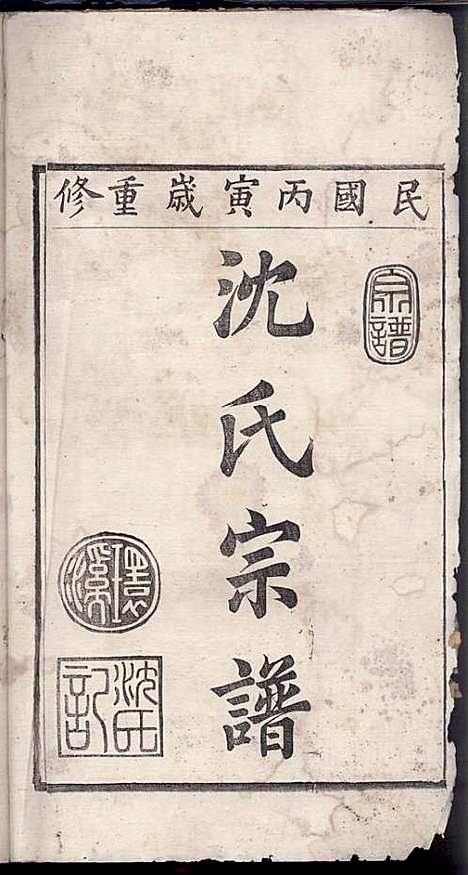 民國丙寅歲重修
宗譜
沈氏宗譜
環溪
沈氏記